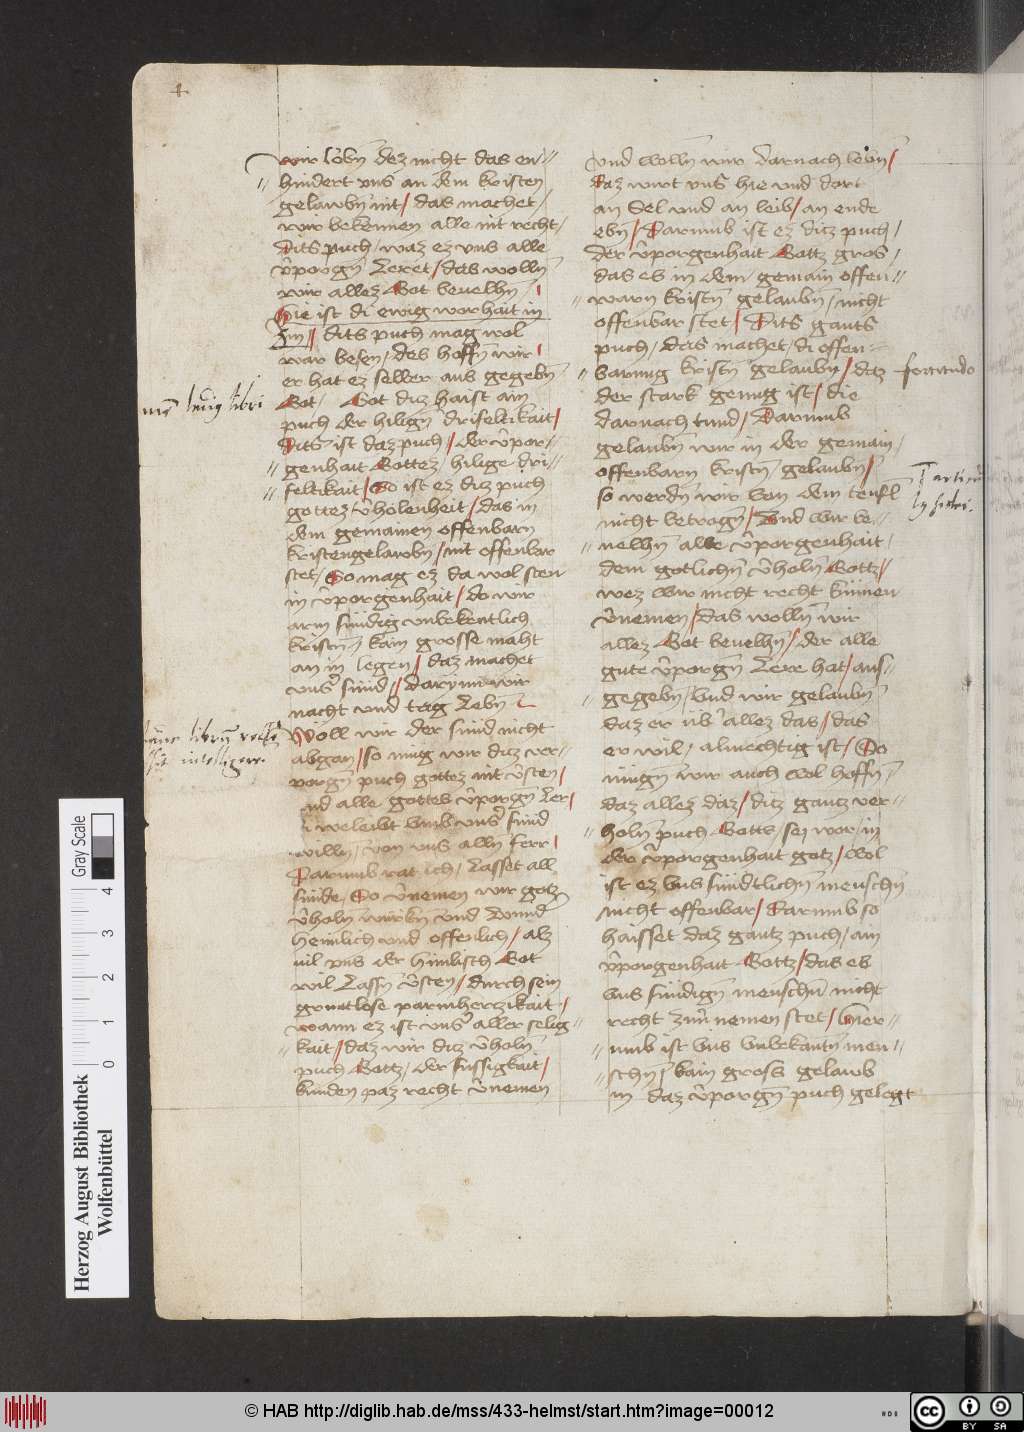 4
wir lobn̄ dez nicht das en//
// hindert vns an dem kristen
gelawbn̄ nit / das machet /
wir bekennen alle nit recht /
Dits puch / waz ez vns alle
v̂porgn̄ Leret / das wolln̄
wir allez Got beuelhn̄ /
Hie ist di ewig worhait in
Im // dits puch mag wol
war wesen / des hoffn̄ wir /
er hat ez selber aus gegebn̄
Got / Got diz haist ain
puch der hilign̄ drifeltikait /
Dits ist daz puch / der v̂por//
// genhait Gottez / hilige dri//
// feltikait / So ist ez diz puch
gottez v̂holenheit / das in
dem gemainen offenbarn
kristengelawbn̄ / nit offenbar
stet / So mag ez da wol sten
in v̂porgenhait / do wir
arm sündig vnbekentlich
kristn̄ / kain grosse maht
an in legen / daz machet
vnser sünd // darynn wir
nacht vnd tag Lebn̄
Woll wir der sünd nicht
abgan / so müg wir diz ver//
porgn̄ puch gottez nit v̂sten /
nd alle gottes v̂porgn̄ Ler /
weleibt vmb vnser sünd
willn̄ / von vns alln̄ ferr /
Darumb rat ich / Lasset all
sünde / So v̂nemen wir gotz
v̂holn̄ würkn̄ vnd Wunder
heimlich vnd offenlich / alz
uil vns der himlisch Got
wil Lassn̄ v̂sten / durch sein
gruntlose parmherzikait /
wann ez ist vnser aller selig//
// kait / daz wir diz v̂holn̄
puch Gottz / der sussigkait /
künden paz recht v̂nemen
vnd wolln̄ wir darnach lebn̄ /
Daz wirt vns hie vnd dort
an Sel vnd an leib / an ende
ebn̄ / Darumb ist ez diz puch /
der v̂porgenhait Gottz gros /
das es in dem / gemain offen//
// warn kristn̄ gelaubn̄ / nicht
offenbar stet / Dits gants
puch / das machet / di offen//
// barung kristn̄ gelaubn̄ / diz
der stark genug ist / die
darnach tund / Darumb
gelaubn̄ wir in der gemain /
offenbarn kristn̄ / gelaubn̄ /
so werdn̄ wir von dem teufl
nicht betrogn̄ / Vnd wir be//
// uelhn̄ alle v̂porgenhait /
dem gotlichn̄ v̂holn̄ Gottz /
wez wir nicht recht künnen
v̂nemen / das wolln̄ wir
allez Got beuelhn̄ / der alle
gute v̂porgn̄ Lere hat / aus//
// gegebn̄ / Vnd wir gelaubn̄
daz er üb' allez das / das
er wil / almechtig ist / So
mügn̄ wir auch wol hoffn̄
daz allez daz / diz gantz ver//
// holn̄ puch Gotts / sei wor / in
der v̂porgenhait gotz / Wol
ist ez vns sündtlichn̄ menschn̄
nicht offenbar / Darumb so
haisset daz gantz puch / ain
v̂porgenhait Gottz / das es
vns sündign̄ menschn̄ nicht
recht zuu̇nemen stet / Wier//
// umb ist vns vnbekantn̄ men//
// schn̄ / kain gross gelaub
in daz v̂porgn̄ puch gelegt
fortitudo
libri
intelligere
Herzog August Bibliothek
Wolfenbüttel
Gray Scale
0 1 2 3 4
© HAB http://diglib.hab.de/mss/433-helmst/start.htm?image=00012
cc BY SA